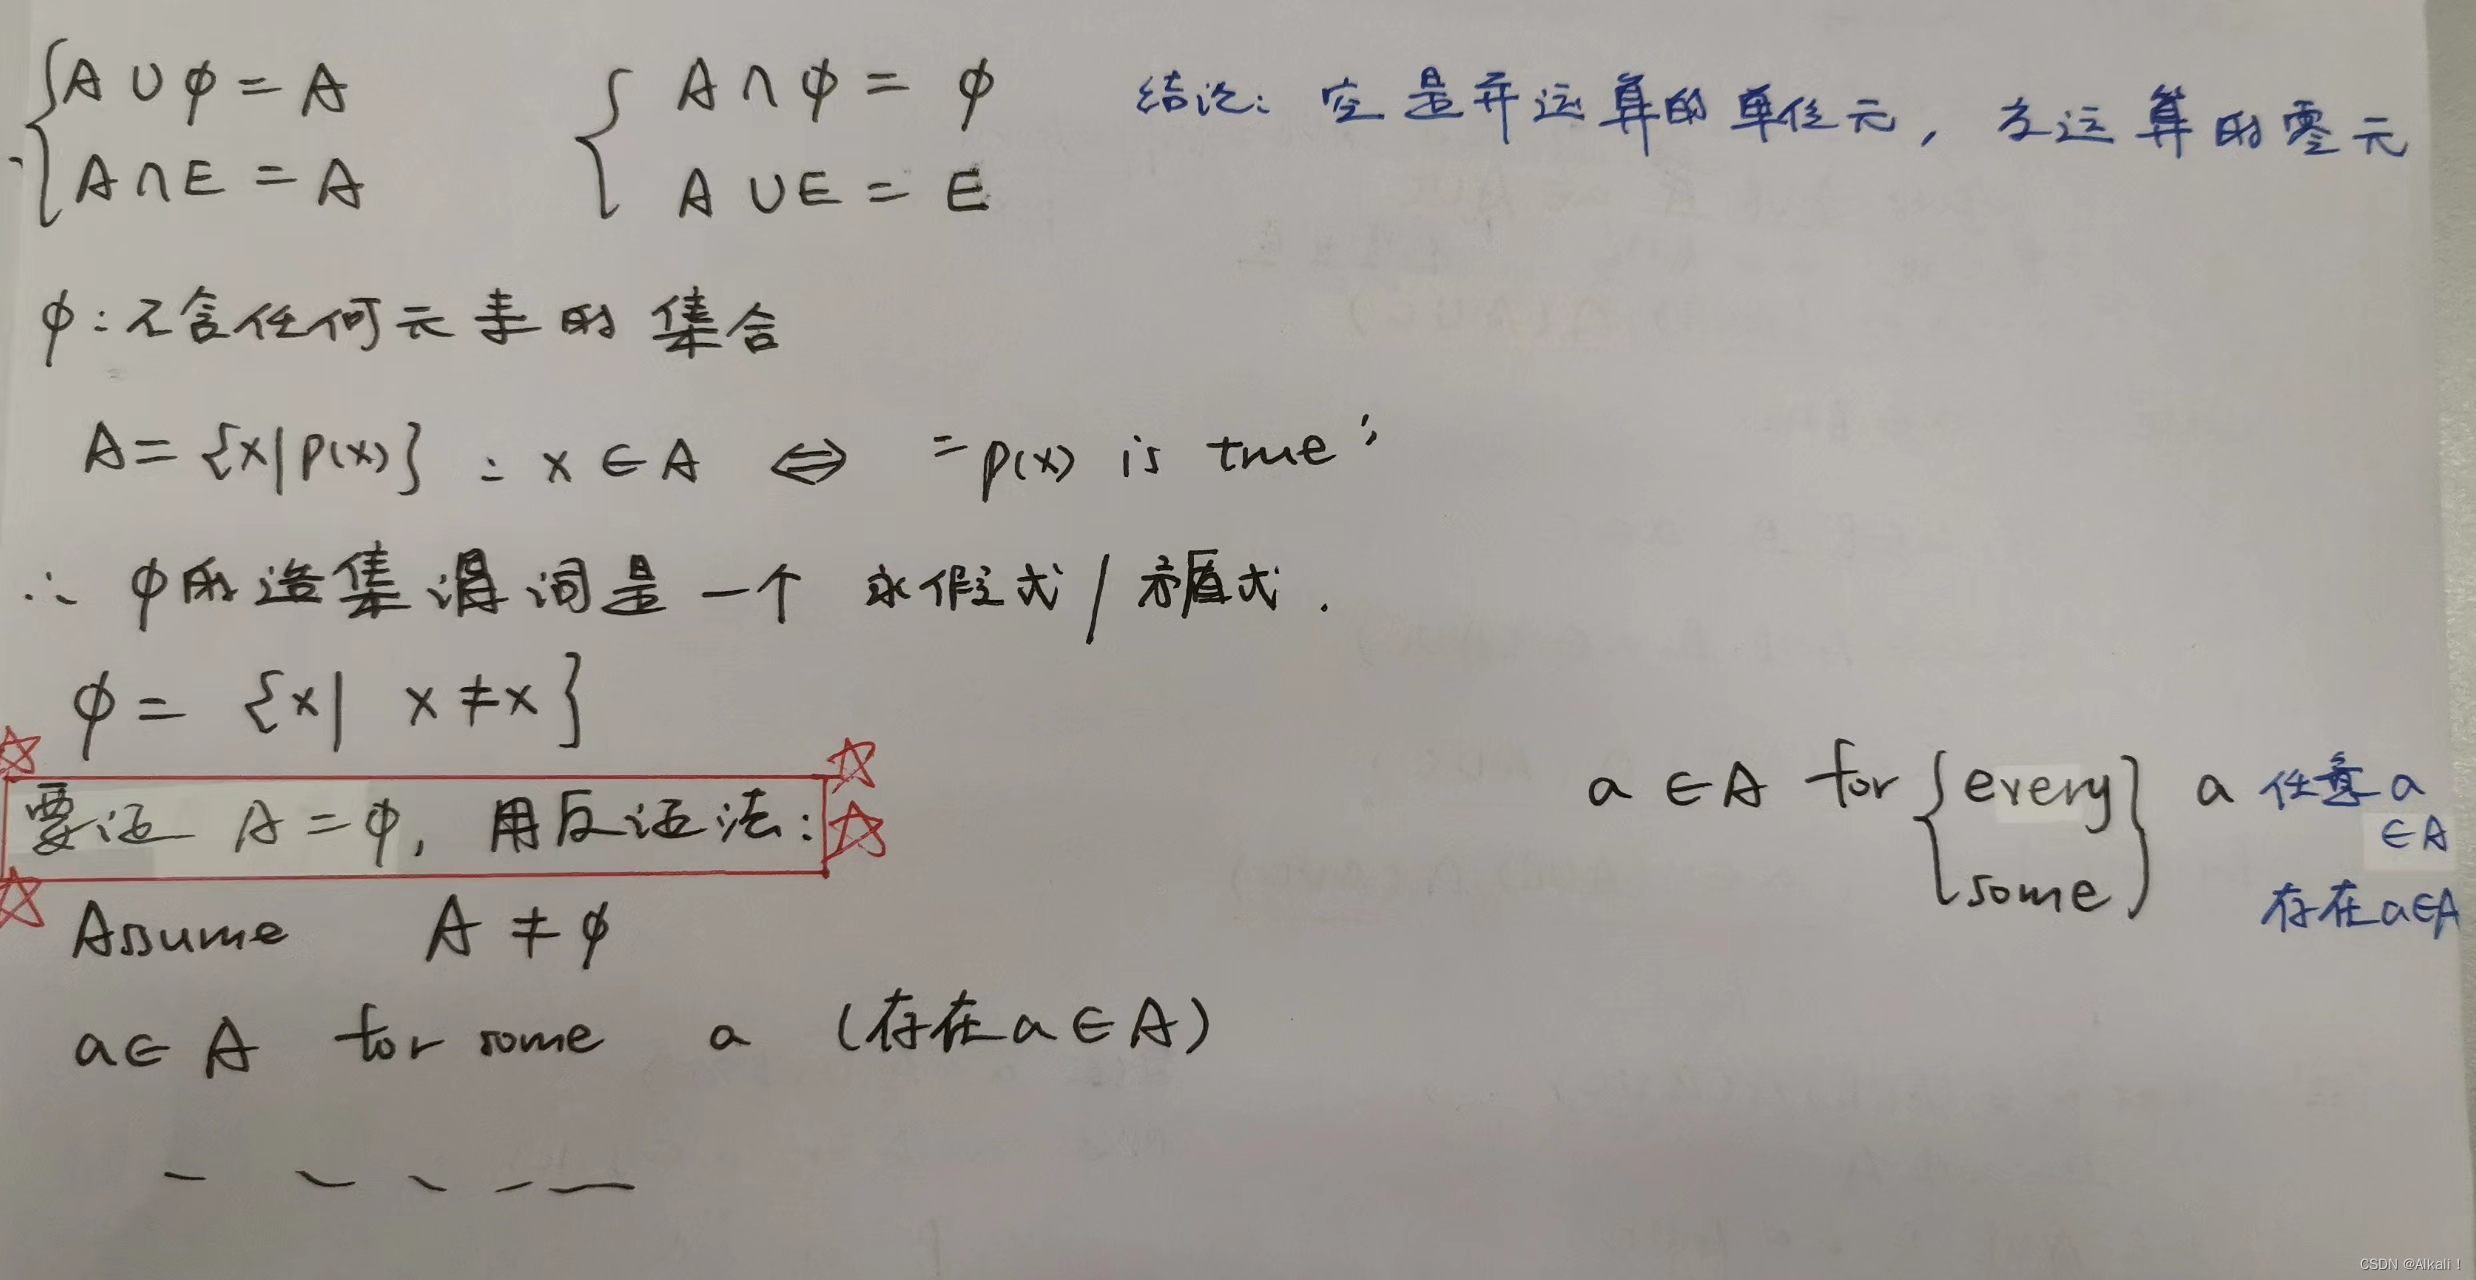 A∪φ=A
A∩E=A
A∩φ=φ
A∪E=E
结论：空是并运算的单位元，交运算的零元
φ：不含任何元素的集合
A={x|P(x)} : x∈A ⇔ "p(x) is true"
∴ φ的造集谓词是一个 永假式/矛盾式.
φ= {x| x≠x}
要证 A=φ, 用反证法:
Assume A≠φ
a∈A for some a (存在a∈A)
a∈A for {every some} a
任意a
∈A
存在a∈A
CSDN @Alkali！